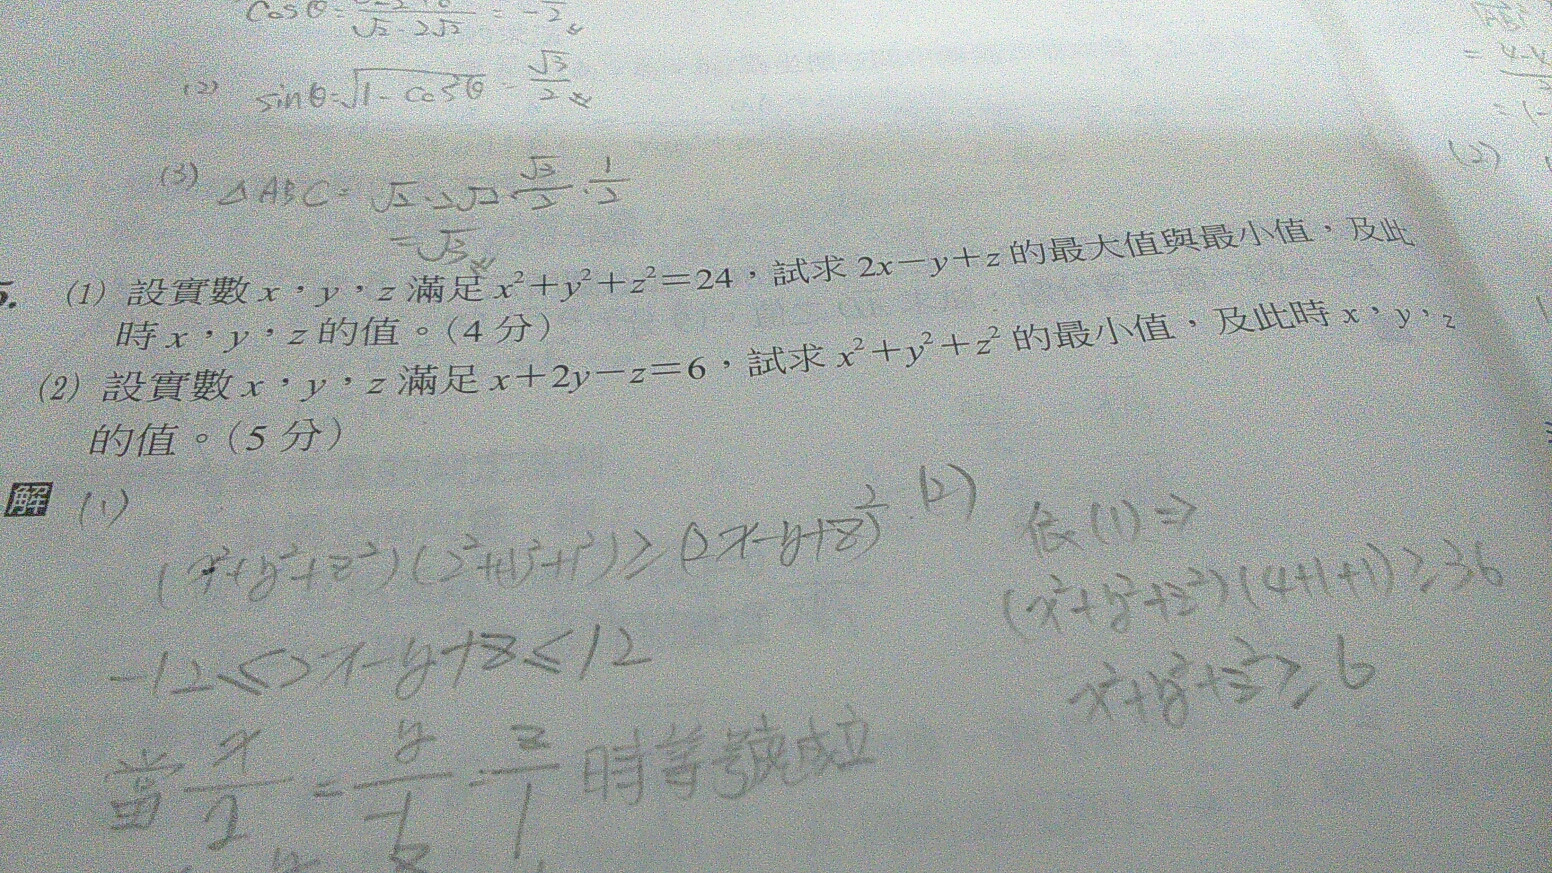 cosθ=
√2·2√2 = -
2
(2) sinθ=√1-cos²θ = √3/2
(3) △ABC= √2·2√2·√3/2·1/2
=√3
(1) 設實數 x,y,z 滿足 x²+y²+z²=24,試求 2x-y+z 的最大值與最小值,及此
時 x,y,z 的值。(4 分)
(2) 設實數 x,y,z 滿足 x+2y-z=6,試求 x²+y²+z² 的最小值,及此時 x,y,z
的值。(5 分)
解 (1)
(x²+y²+z²)(2²+(-1)²+1²)≥(2x-y+z)²
-12≤2x-y+z≤12
當 x/2 = y/-1 = z/1 時等號成立
(2) 依(1)⇒
(x²+y²+z²)(4+1+1)≥36
x²+y²+z²≥6
(2)